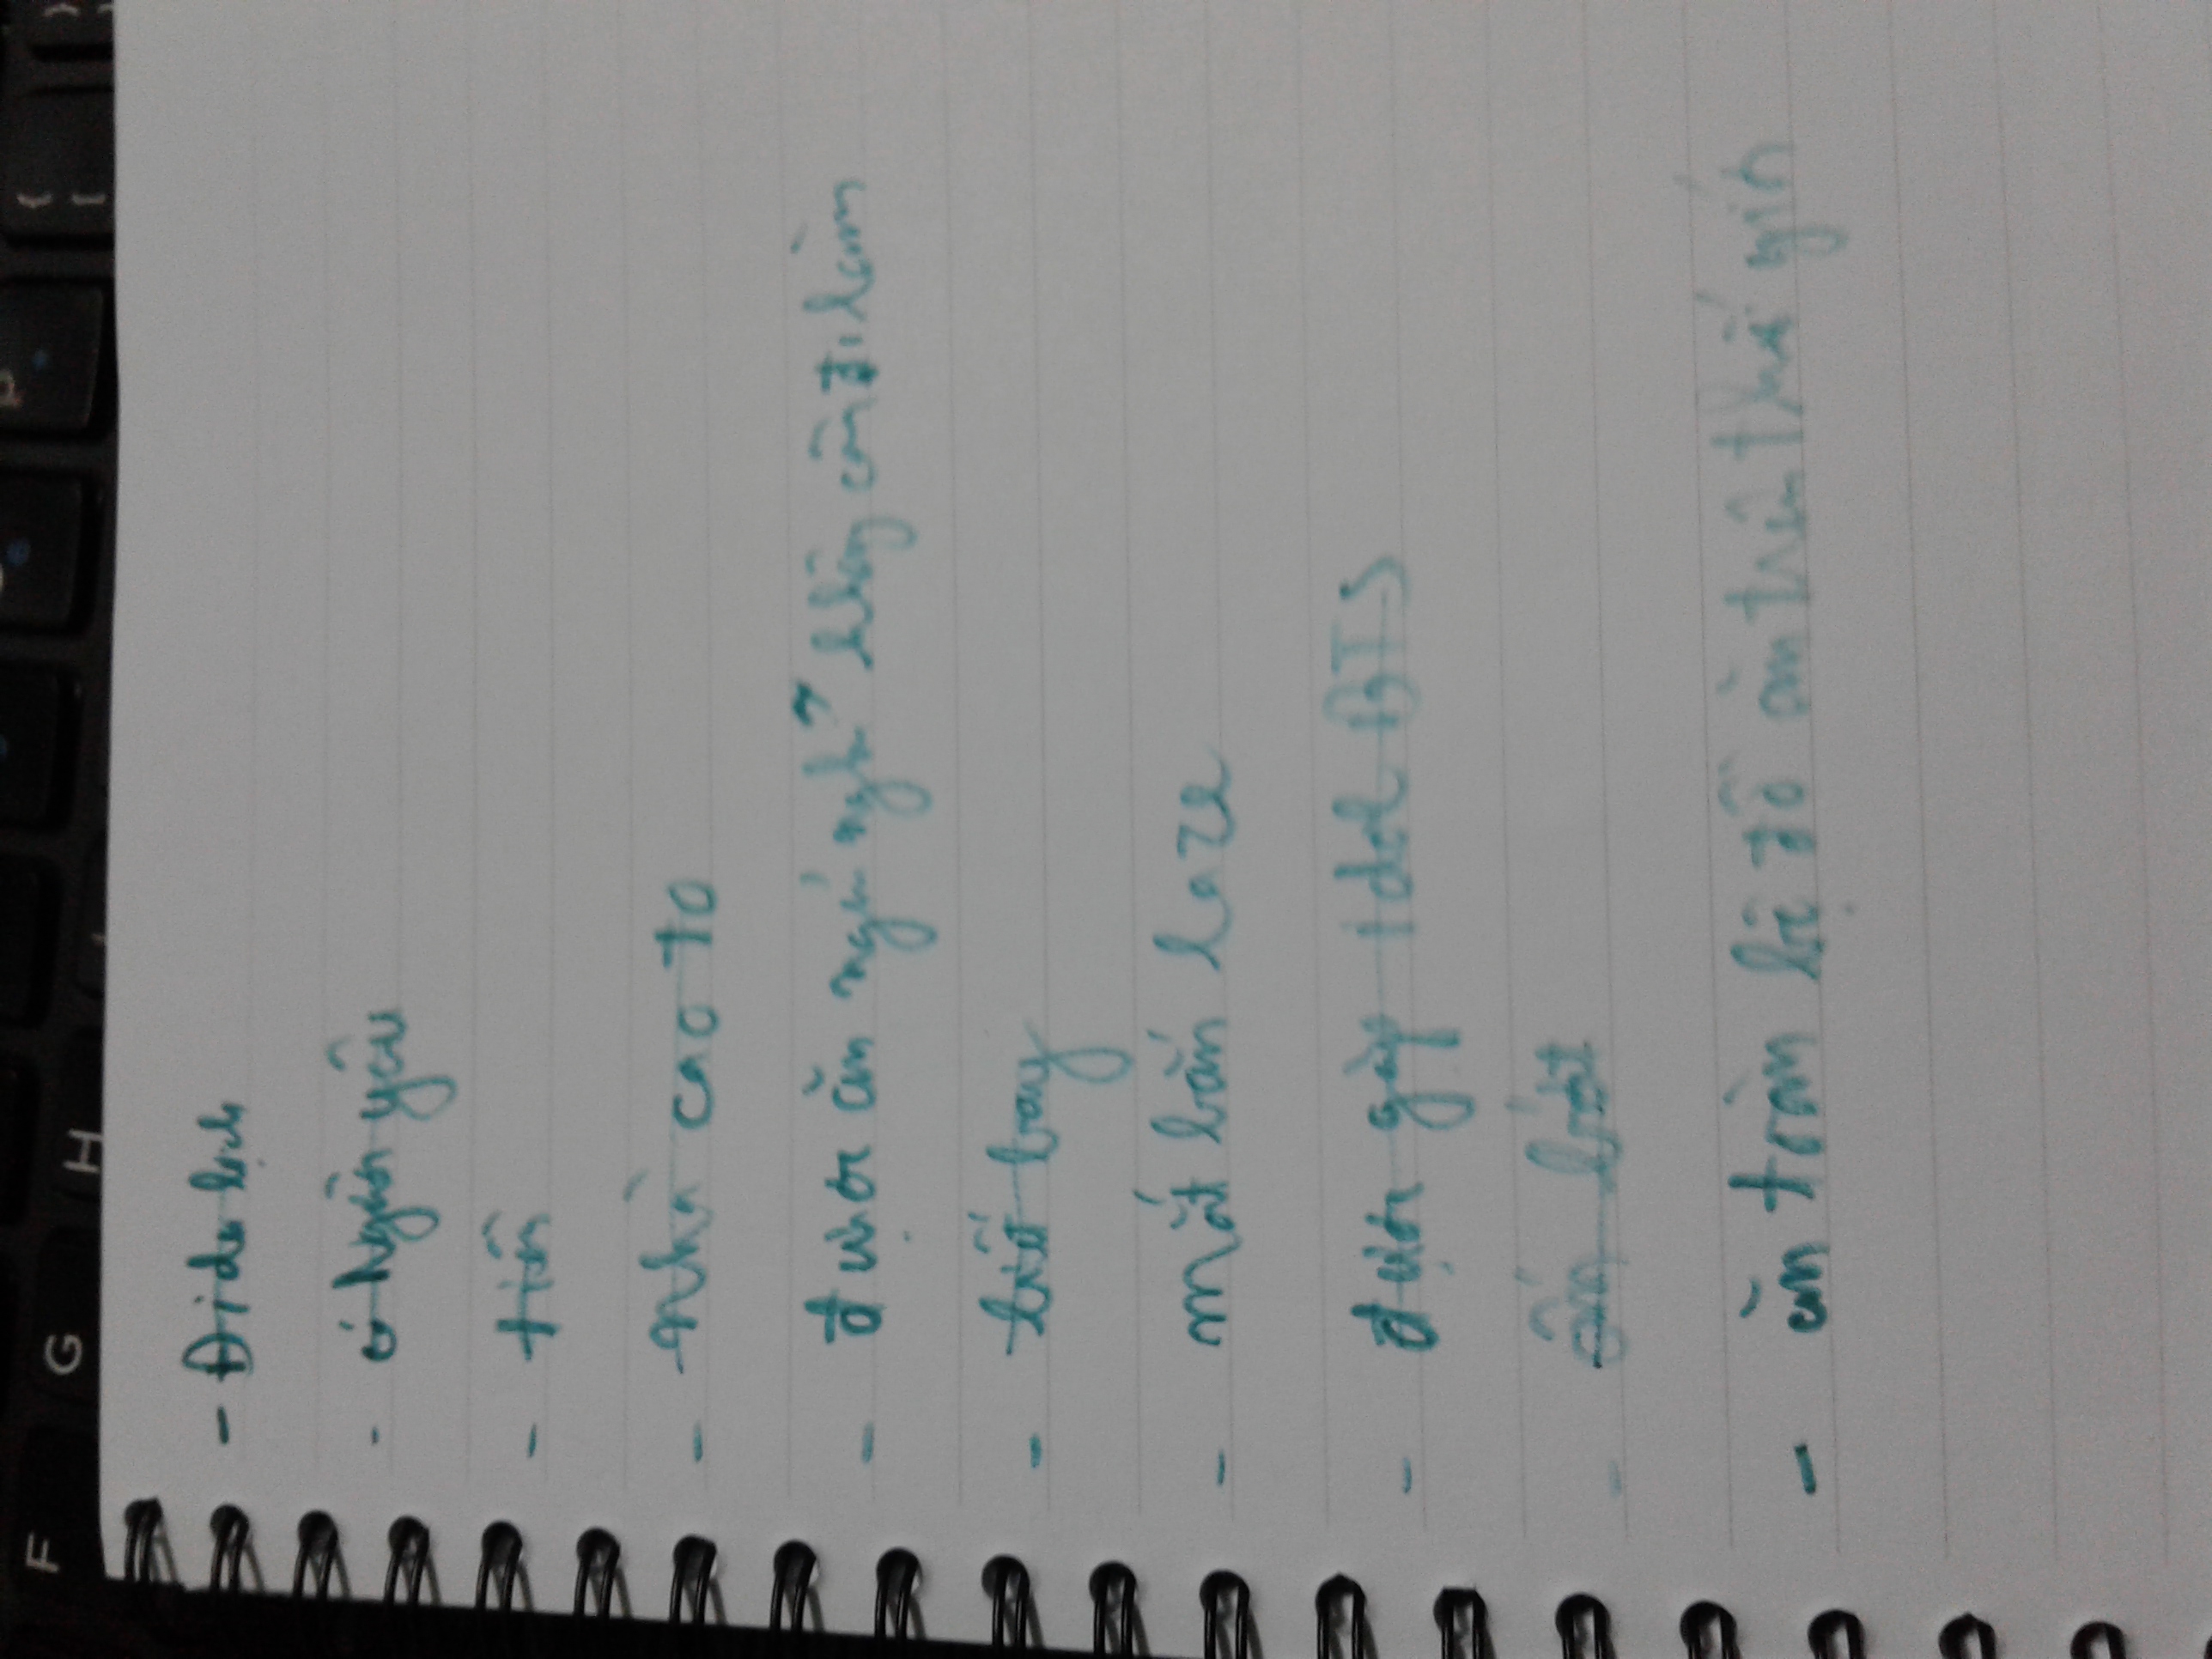 F G H
- Đi du lịch
- có Người yêu
- tiền
- nhà cao to
- được ăn ngủ nghỉ không cần đi làm
- biết bay
- mắt bắn laze
- được gặp Idol BTS
- ăn toàn bộ đồ ăn trên thế giới